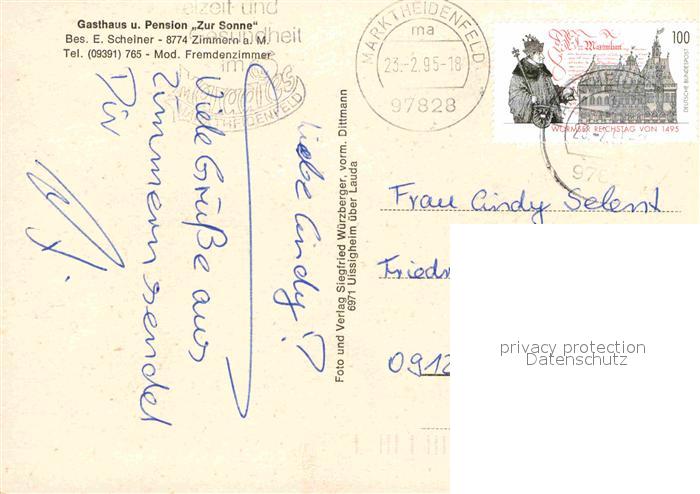 Gasthaus u. Pension „Zur Sonne“
Bes. E. Scheiner - 8774 Zimmern a. M.
Tel. (09391) 765 - Mod. Fremdenzimmer
Freizeit und
Gesundheit
im
MARKTHEIDENFELD
MARKTHEIDENFELD
ma
23.-2.95-18
97828
100
DEUTSCHE BUNDESPOST
WORMSER REICHSTAG VON 1495
Liebe Cindy!
Viele Grüße aus
Zimmern sendet
Dir
Foto und Verlag Siegfried Würzberger, vorm. Dittmann
6971 Uissigheim über Lauda
Frau Cindy Selent
Friedr
0912
privacy protection
Datenschutz